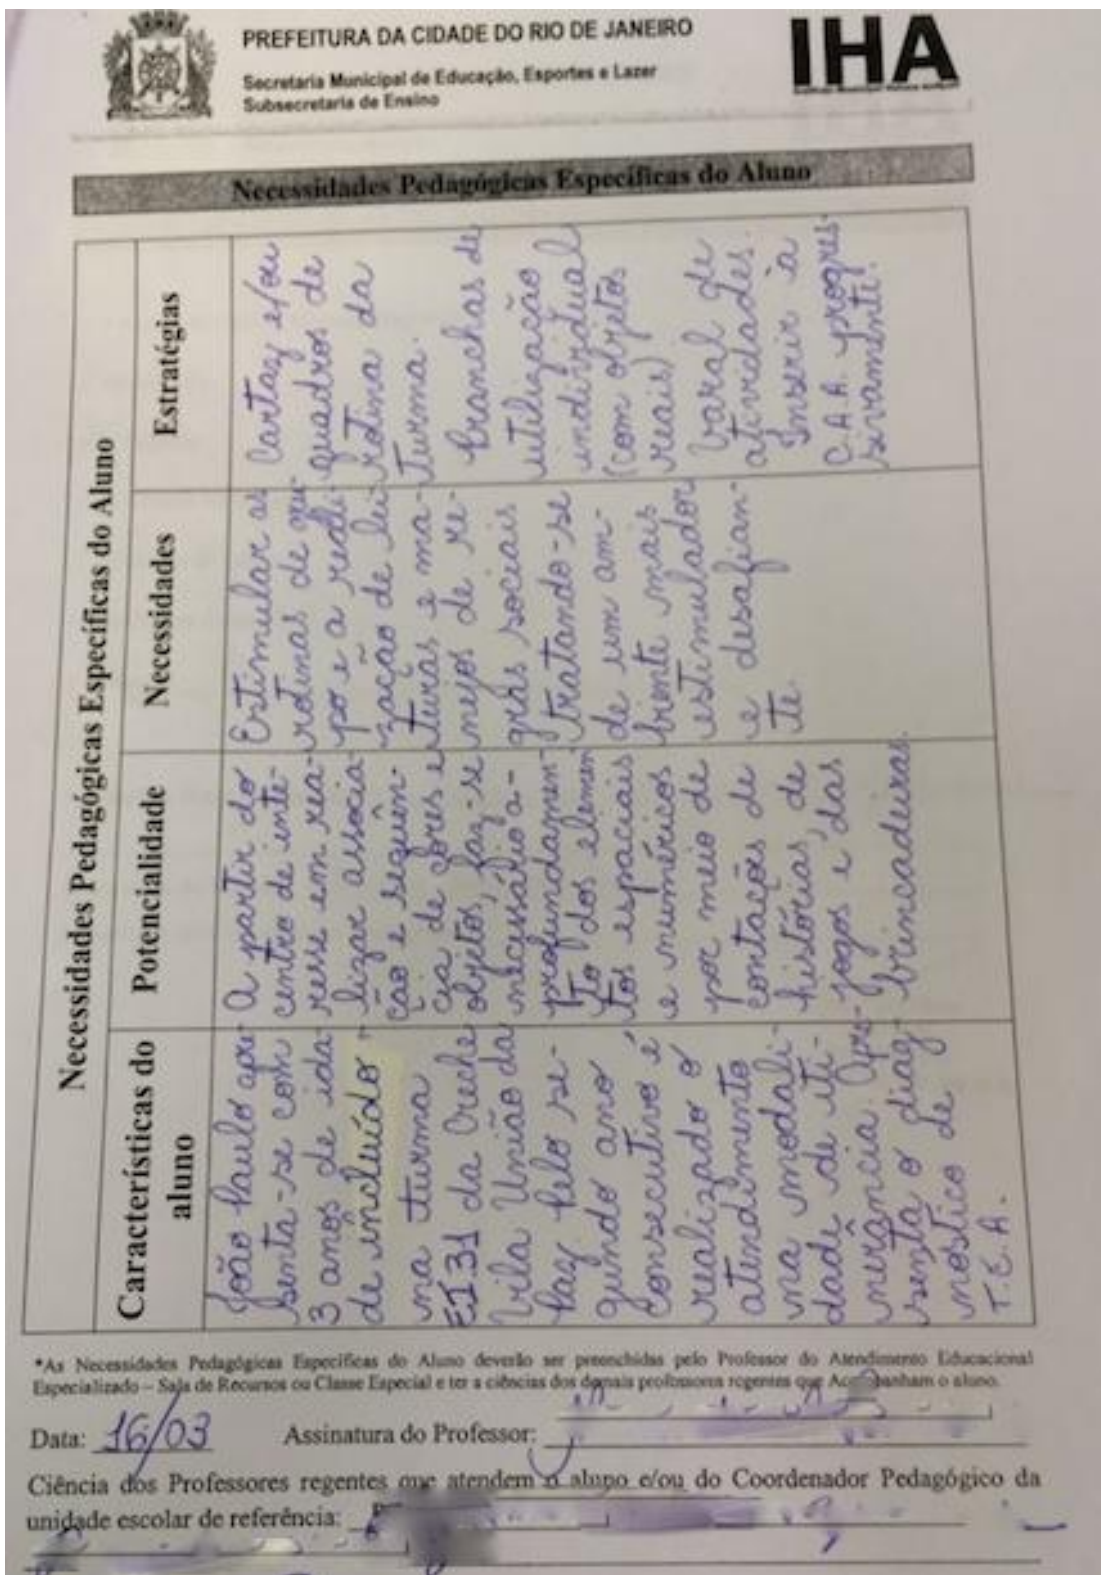 PREFEITURA DA CIDADE DO RIO DE JANEIRO
Secretaria Municipal de Educação, Esportes e Lazer
Subsecretaria de Ensino
IHA
Necessidades Pedagógicas Específicas do Aluno
Necessidades Pedagógicas Específicas do Aluno
Características do
aluno
João Paulo apre-
senta-se com
3 anos de ida-
de incluído
na turma
EI31 da Creche
Vila União da
Paz pelo se-
gundo ano
consecutivo é
realizado o
atendimento
na modali-
dade de iti-
nerância. Apre-
senta o diag-
nóstico de
T.E.A.
Potencialidade
A partir do
centro de inte-
resse em rea-
lizar associa-
ção e sequên-
cia de cores e
objetos, faz-se
necessário a-
profundamen-
to dos elemen
tos espaciais
e numéricos
por meio de
contações de
histórias, de
jogos e das
brincadeiras.
Necessidades
Estimular as
rotinas de gru-
po e a reali-
zação de lei-
turas e ma-
nejos de re-
gras sociais
tratando-se
de um am-
biente mais
estimulador
e desafian-
te.
Estratégias
Cartaz e/ou
quadros de
rotina da
turma.
Pranchas de
utilização
individual
(com objetos
reais)
Varal de
atividades.
Inserir a
C.A.A. progres-
sivamente.
*As Necessidades Pedagógicas Específicas do Aluno deverão ser preenchidas pelo Professor do Atendimento Educacional
Especializado – Sala de Recursos ou Classe Especial e ter a ciências dos demais professores regentes que Acompanham o aluno.
Data: 16/03 Assinatura do Professor:
Ciência dos Professores regentes que atendem o aluno e/ou do Coordenador Pedagógico da
unidade escolar de referência: